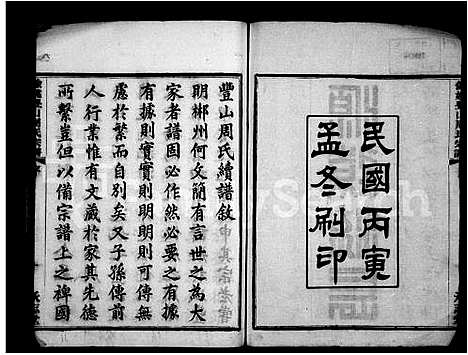 民國丙寅
孟冬刷印
豐山周氏續譜敘
明郴州何文簡有言世之為大
家者譜固必作然必要之有據
有據則實實則明明則可傳無
慮於繁而自別矣又子孫傳前
人行業惟有文藏於家其先德
所繫豈但以備宗譜上之裨國